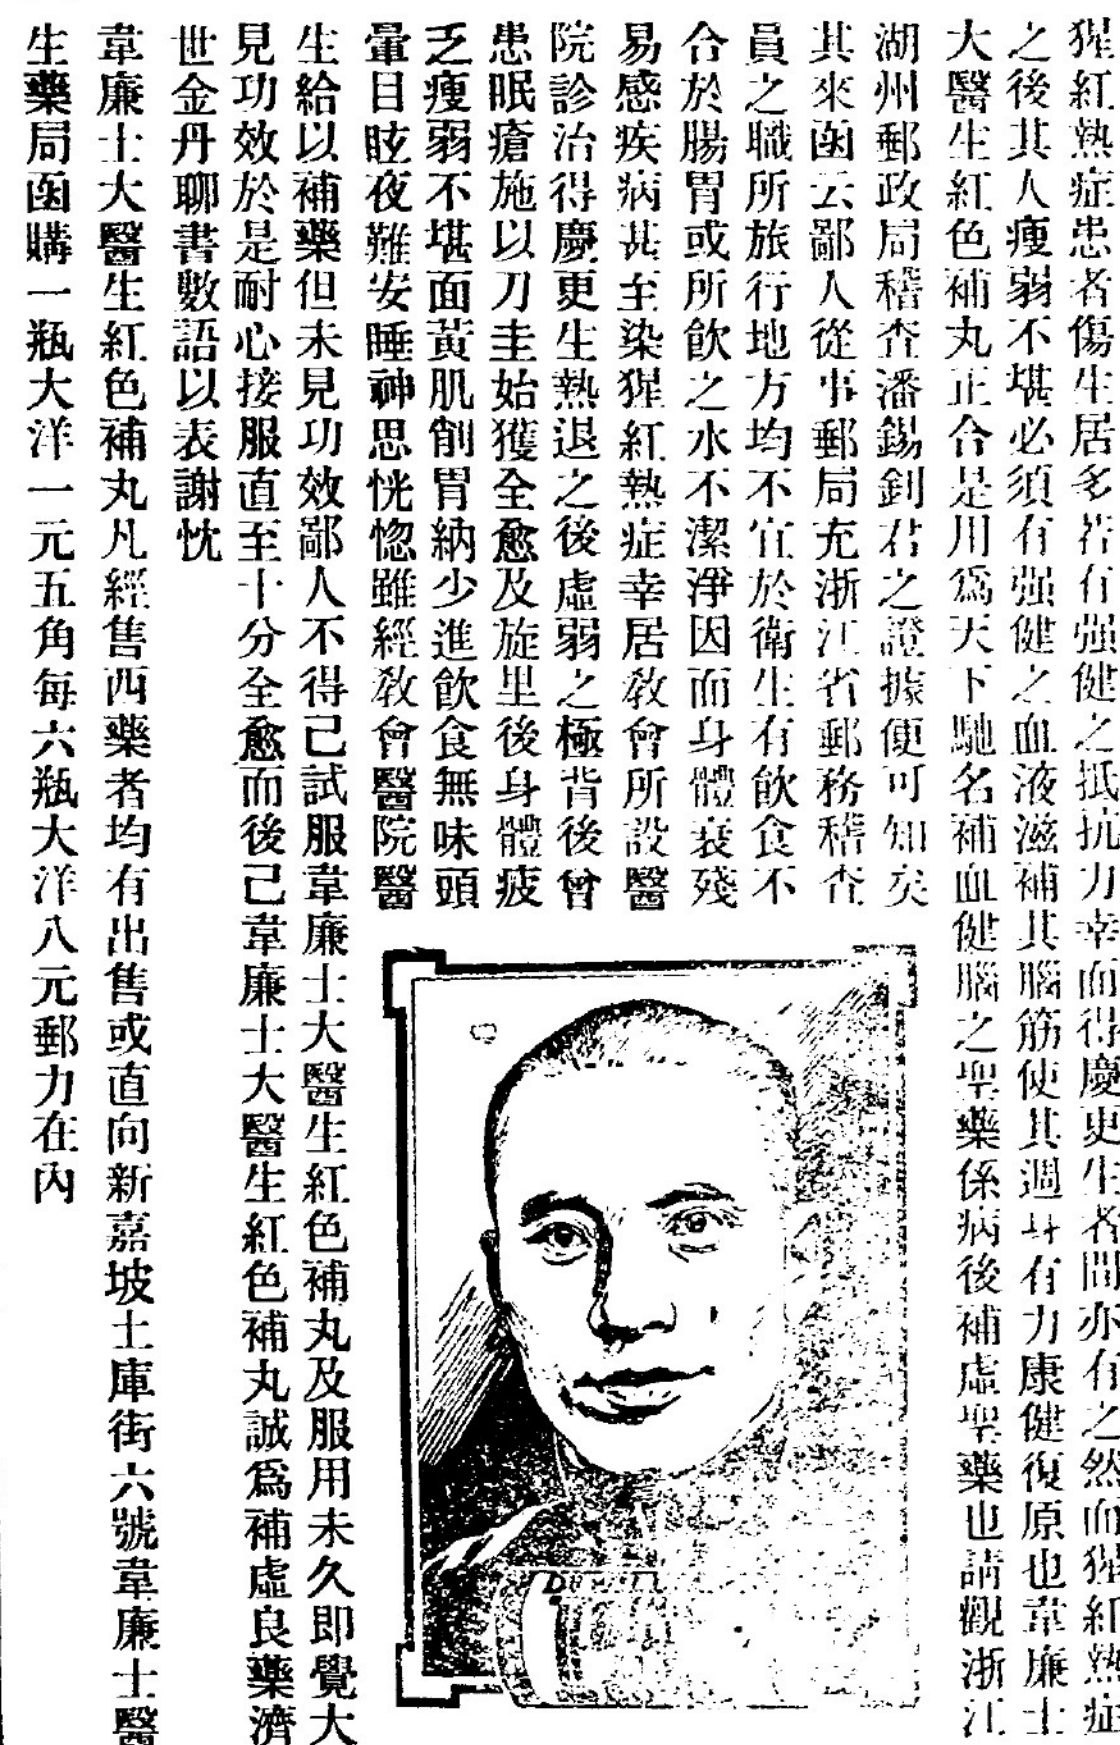 猩紅熱症患者傷生居多若有强健之抵抗力幸而得慶更生者間亦有之然而猩紅熱症
之後其人瘦弱不堪必須有强健之血液滋補其腦筋使其週身有力康健復原也韋廉士
大醫生紅色補丸正合是用爲天下馳名補血健腦之聖藥係病後補虛聖藥也請觀浙江
湖州郵政局稽查潘錫釗君之證據便可知矣
其來函云鄙人從事郵局充浙江省郵務稽查
員之職所旅行地方均不宜於衛生有飲食不
合於腸胃或所飲之水不潔淨因而身體衰殘
易感疾病甚至染猩紅熱症幸居敎會所設醫
院診治得慶更生熱退之後虛弱之極背後曾
患眠瘡施以刀圭始獲全愈及旋里後身體疲
乏瘦弱不堪面黃肌削胃納少進飲食無味頭
暈目眩夜難安睡神思恍惚雖經敎會醫院醫
生給以補藥但未見功效鄙人不得已試服韋廉士大醫生紅色補丸及服用未久即覺大
見功效於是耐心接服直至十分全愈而後已韋廉士大醫生紅色補丸誠爲補虛良藥濟
世金丹聊書數語以表謝忱
韋廉士大醫生紅色補丸凡經售西藥者均有出售或直向新嘉坡土庫街六號韋廉士醫
生藥局函購一瓶大洋一元五角每六瓶大洋八元郵力在內